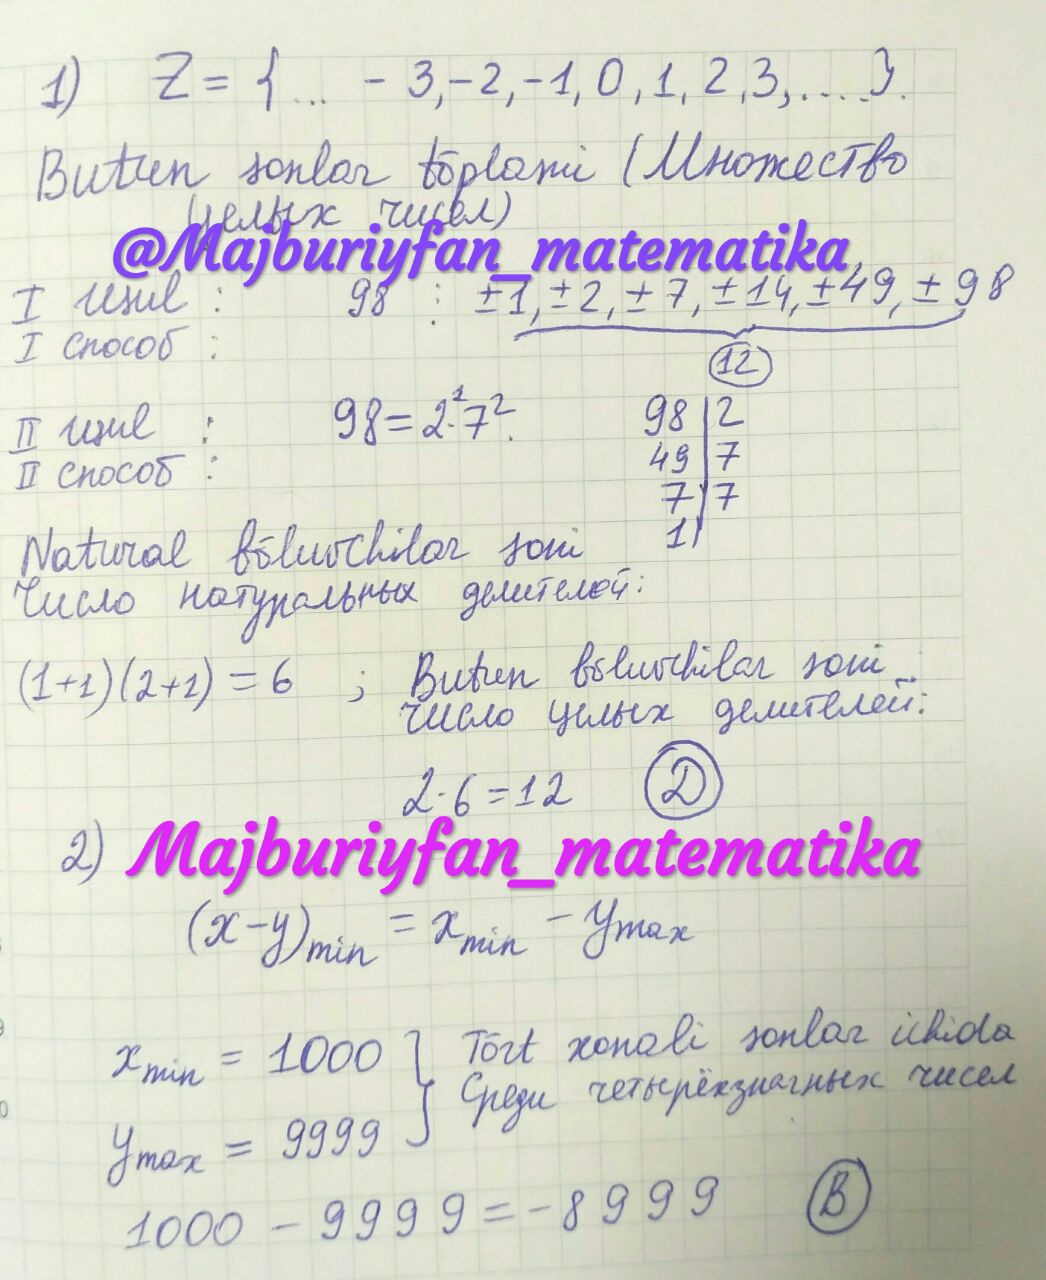 1) Z = { ... - 3, -2, -1, 0, 1, 2, 3, .... }.
Butun sonlar tōplami (Множество
целых чисел)
@Majburiyfan_matematika
I usul : 98 : ±1, ±2, ±7, ±14, ±49, ±98
I способ :
12
II usul : 98 = 2¹·7². 98 | 2
II способ : 49 | 7
7 | 7
1 |
Natural bōluvchilar soni
Число натуральных делителей:
(1+1)(2+1) = 6 ; Butun bōluvchilar soni
число целых делителей:
2·6=12 D
2) Majburiyfan_matematika
(x-y)min = xmin - ymax
xmin = 1000 } Tōrt xonali sonlar ichida
Среди четырёхзначных чисел
ymax = 9999
1000 - 9999 = -8999 B